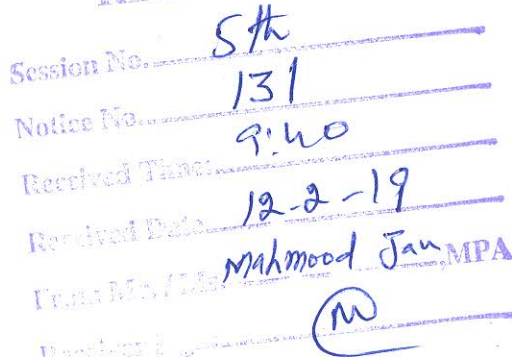 Session No. 5th
Notice No. 131
Received Time: 9:40
Received Date 12-2-19
From Mr./Ms. Mahmood Jan, MPA